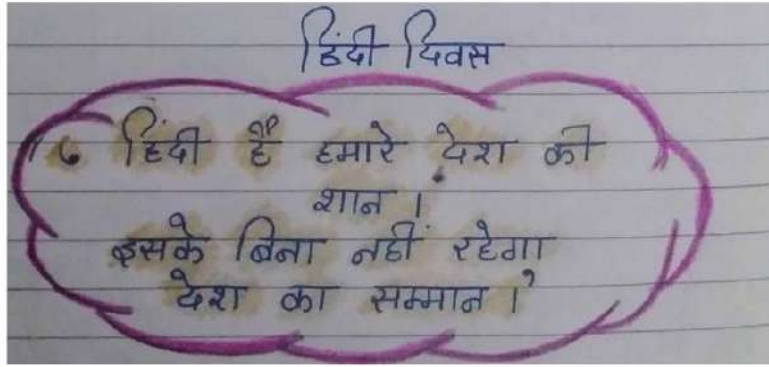 हिंदी दिवस
“ हिंदी है हमारे देश की
शान ।
इसके बिना नहीं रहेगा
देश का सम्मान ।”